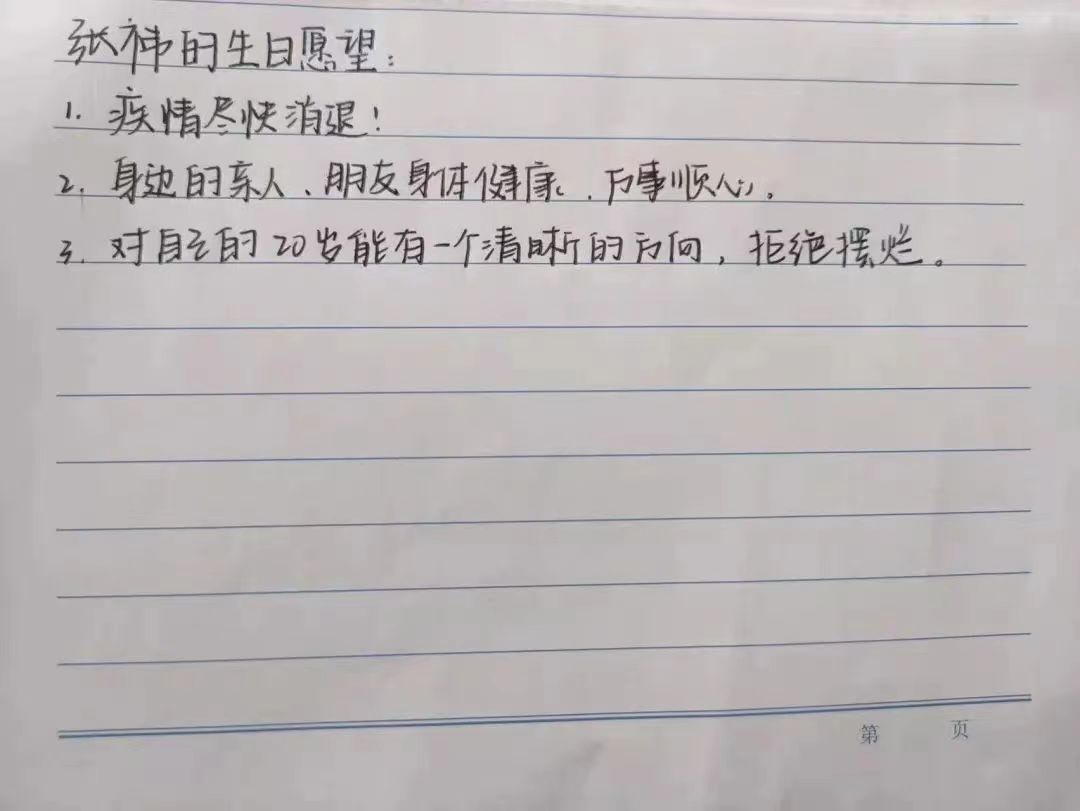 张祎的生日愿望：
1. 疫情尽快消退！
2. 身边的亲人、朋友身体健康、万事顺心。
3. 对自己的20岁能有一个清晰的方向，拒绝摆烂。
第 页